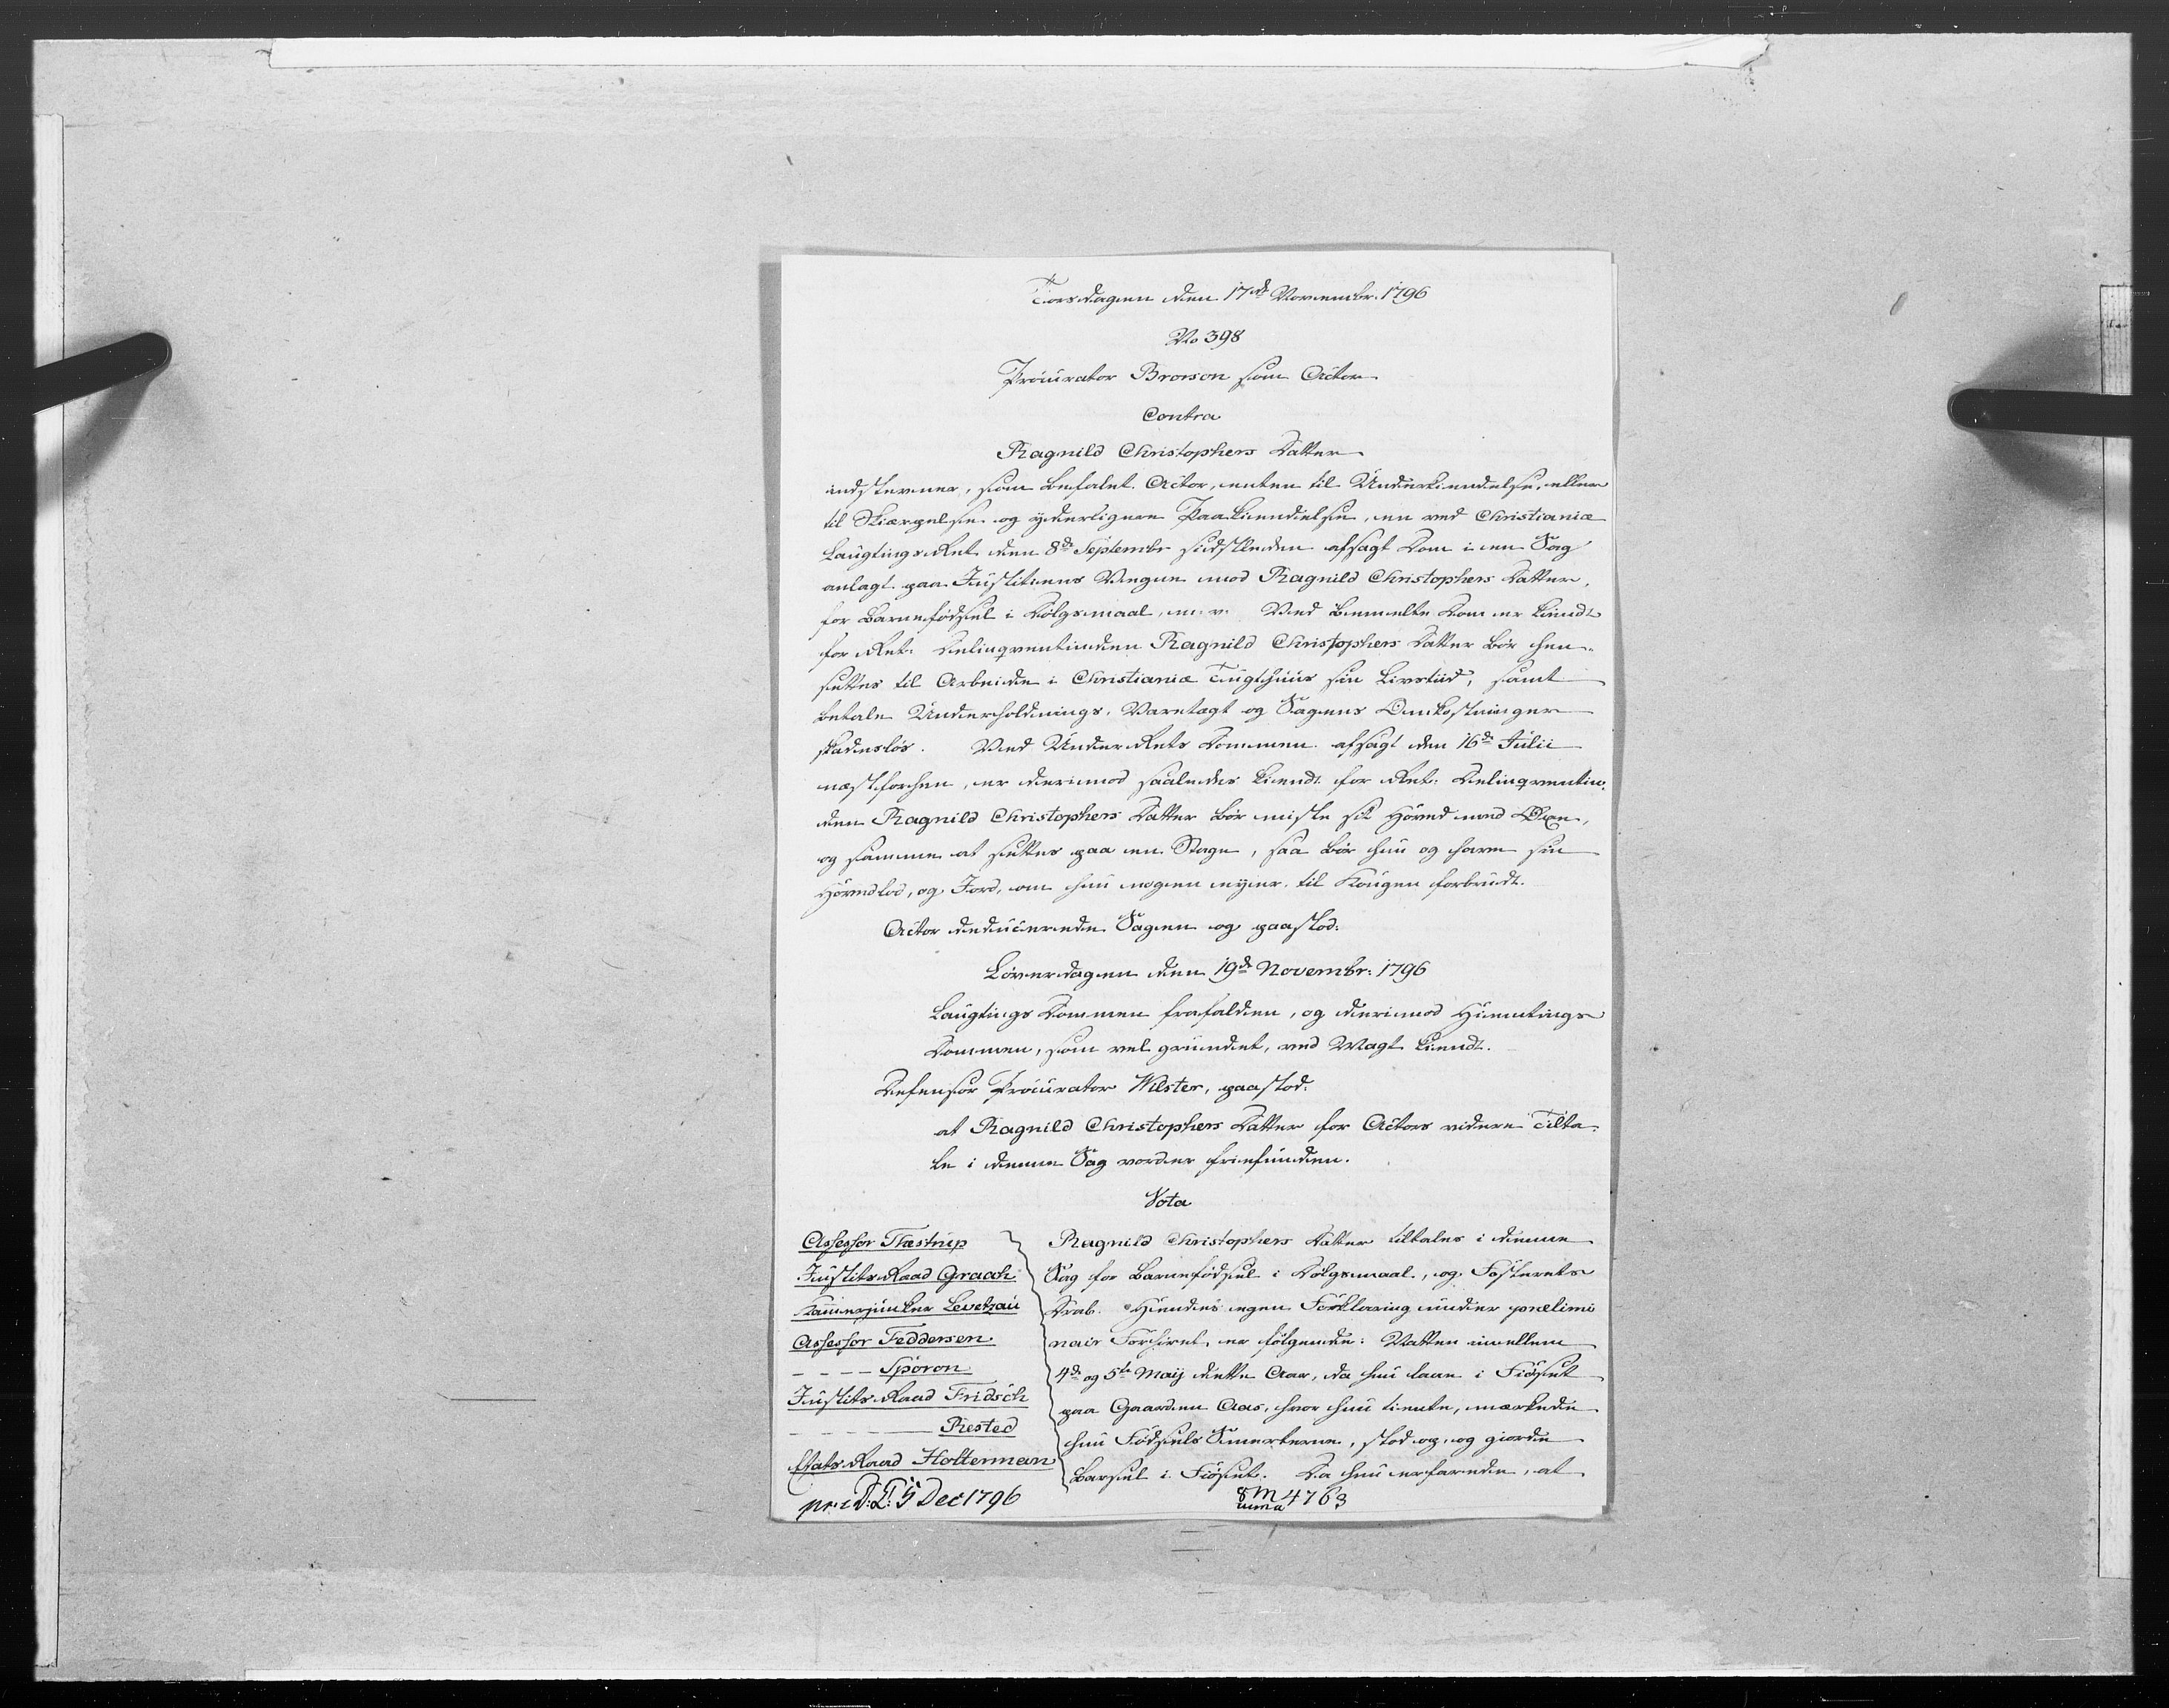 Torsdagen den 17de Novembr. 1796
No 398
Procurator Brorson som Actor
Contra
Ragnild Christophers Datter
indstevner, som befalet Actor, enten til Underkiendelse, eller
til Skiærpelse og yderligere Paakiendelse, en ved Christianiæ
Laugtings Ret den 8de Septembr sidstleden afsagt Dom i en Sag
anlagt paa Justitiens Vegne mod Ragnild Christophers Datter,
for Barnefødsel i Dølgsmaal, m: v. Ved bemelte Dom er kiendt
for Ret: Delinqventinden Ragnild Christophers Datter bør hen-
settes til Arbeide i Christianiæ Tugthuus sin Livstiid, samt
betale Underholdnings, Varetægt og Sagens Omkostninger
skadesløs. Ved UnderRets Dommen afsagt den 16de Julii
næstforhen, er derimod saaledes kiendt for Ret: Delinqventin-
den Ragnild Christophers Datter bør miste sit Hoved med Øxe,
og samme at settes paa en Stage, saa bør hun og have sin
Hovedlod, og Jord, om hun nogen eyer, til Kongen forbrudt.
Actor deducerede Sagen og paastod:
Løverdagen den 19de Novembr: 1796
Laugtings Dommen frafalden, og derimod Hiemtings
Dommen, som vel grundet, ved Magt kiendt.
Defensor Procurator Wilster, paastod:
at Ragnild Christophers Datter for Actors videre Tilta-
le i denne Sag vorder friefunden.
Vota
Assessor Thestrup
JustitsRaad Graah
Kammerjunker Levetzau
Assessor Feddersen
- - - - Sporon
JustitsRaad Fridsch
- - - - - Rested
EtatsRaad Holterman
Ragnild Christophers Datter tiltales i denne
Sag for Barnefødsel i Dølgsmaal, og Fosterets
Drab. Hendes egen Forklaring under prælimi
nair Forhøret, er følgende: Natten imellem
4de og 5te Maij dette Aar, da hun laae i Fiøset
paa Gaarden Aas, hvor hun tiente, mærkede
hun Fødsels Smerterne, stod op, og giorde
Barsel i Fiøset. Da hun erfarede, at
5 Dec 1796
4763